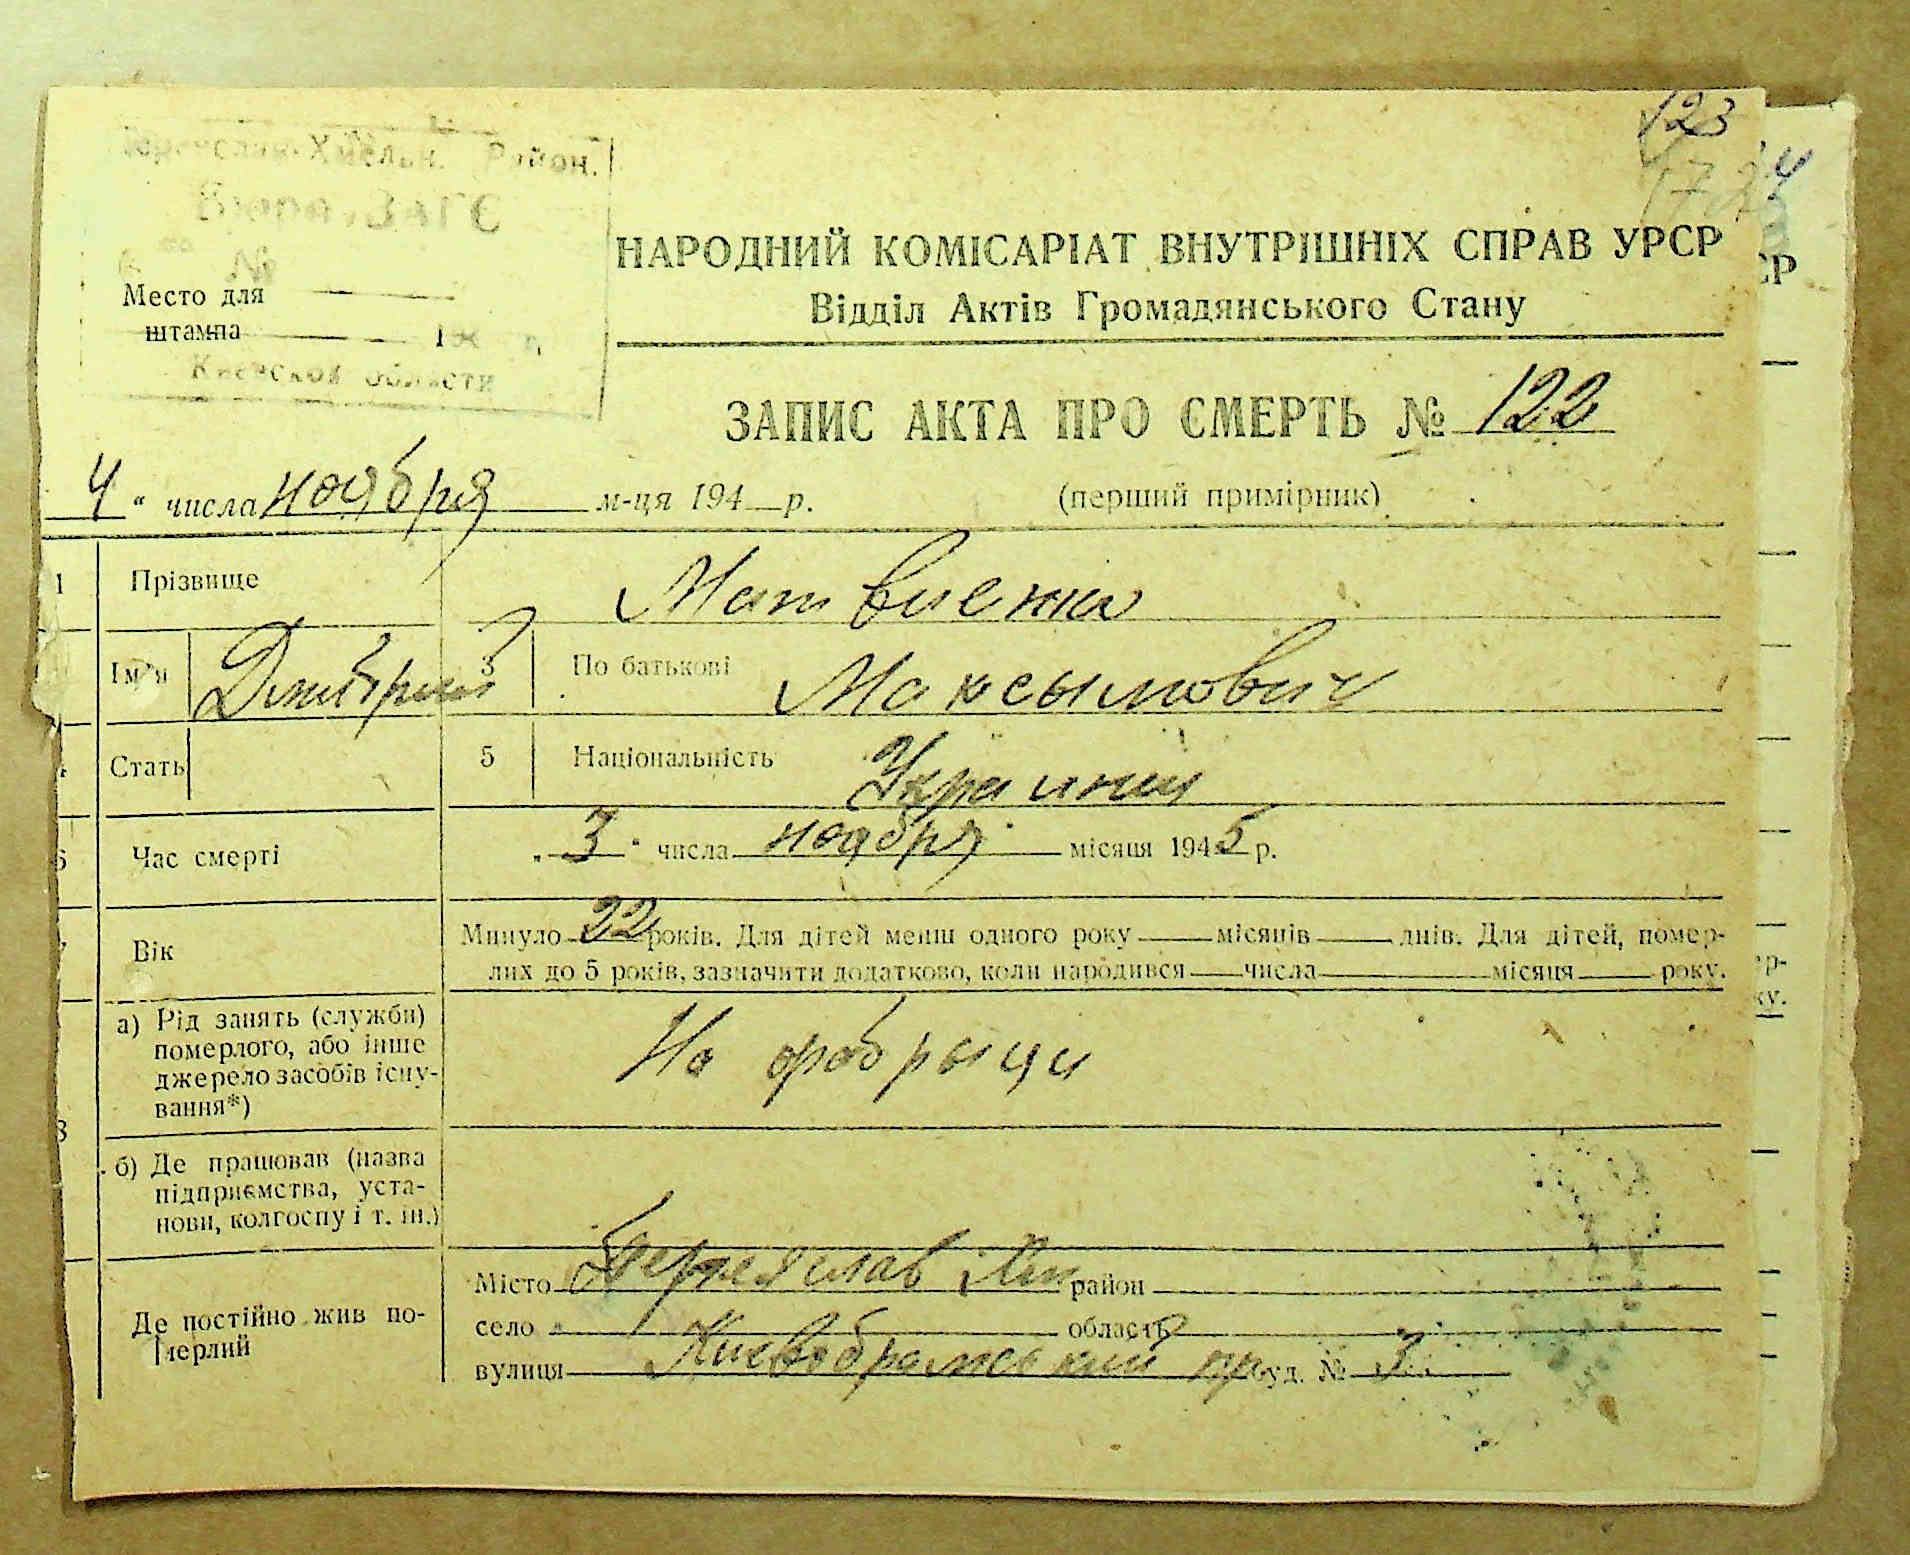 123
Район.
ЗАГС
Место для
штампа
Киевской области
НАРОДНИЙ КОМІСАРІАТ ВНУТРІШНІХ СПРАВ УРСР
Відділ Актів Громадянського Стану
ЗАПИС АКТА ПРО СМЕРТЬ № 122
4 " числа ноября м-ця 194 р. (перший примірник)
1 Прізвище Матвиенко
Ім'я Дмитрий 3 По батькові Максымович
Стать 5 Національність Украинец
Час смерті 3 числа ноября місяця 1945 р.
Вік Минуло 22 років. Для дітей менш одного року місяців днів. Для дітей, помер-
лих до 5 років, зазначити додатково, коли народився числа місяця року.
8 а) Рід занять (служби) померлого, або інше джерело засобів існування*) На фабрыци
б) Де працював (назва підприємства, установи, колгоспу і т. ін.)
Де постійно жив померлий Місто Переяслав район
село область
вулиця Киевобрамський буд. № 3